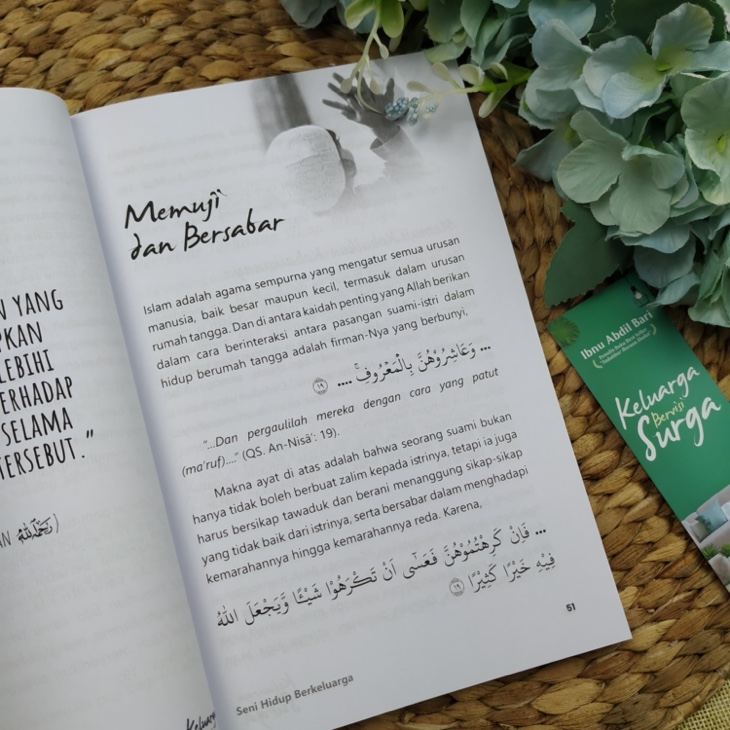 N YANG
PKAN
LEBIHI
ERHADAP
SELAMA
TERSEBUT."
AN رحمه الله)
Keluarg
Memuji
dan Bersabar
Islam adalah agama sempurna yang mengatur semua urusan
manusia, baik besar maupun kecil, termasuk dalam urusan
rumah tangga. Dan di antara kaidah penting yang Allah berikan
dalam cara berinteraksi antara pasangan suami-istri dalam
hidup berumah tangga adalah firman-Nya yang berbunyi,
... وَعَاشِرُوْهُنَّ بِالْمَعْرُوْفِۚ .... ١٩
"...Dan pergaulilah mereka dengan cara yang patut
(ma'ruf)...." (QS. An-Nisā': 19).
Makna ayat di atas adalah bahwa seorang suami bukan
hanya tidak boleh berbuat zalim kepada istrinya, tetapi ia juga
harus bersikap tawaduk dan berani menanggung sikap-sikap
yang tidak baik dari istrinya, serta bersabar dalam menghadapi
kemarahannya hingga kemarahannya reda. Karena,
... فَاِنْ كَرِهْتُمُوْهُنَّ فَعَسٰٓى اَنْ تَكْرَهُوْا شَيْـًٔا وَّيَجْعَلَ اللّٰهُ
فِيْهِ خَيْرًا كَثِيْرًا ١٩
51
Seni Hidup Berkeluarga
Ibnu Abdil Bari
Keluarga
Bervisi
Surga